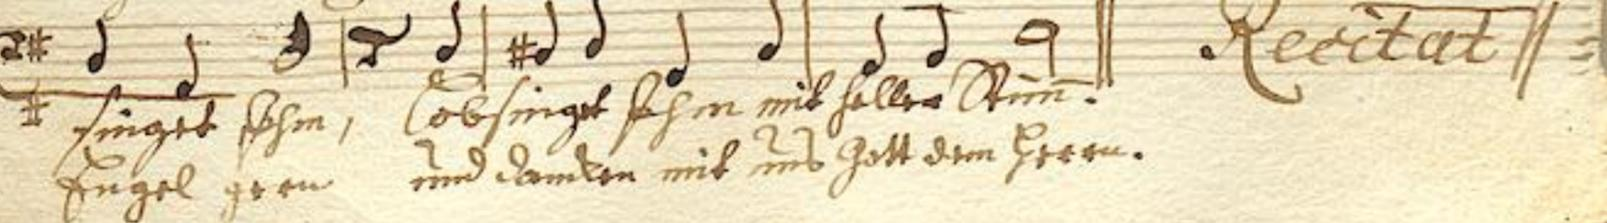 Recitat
singet Ihm, Lobsinget Ihm mit heller Stim̄.
Engel gern und dancken mit uns Gott dem Herrn.